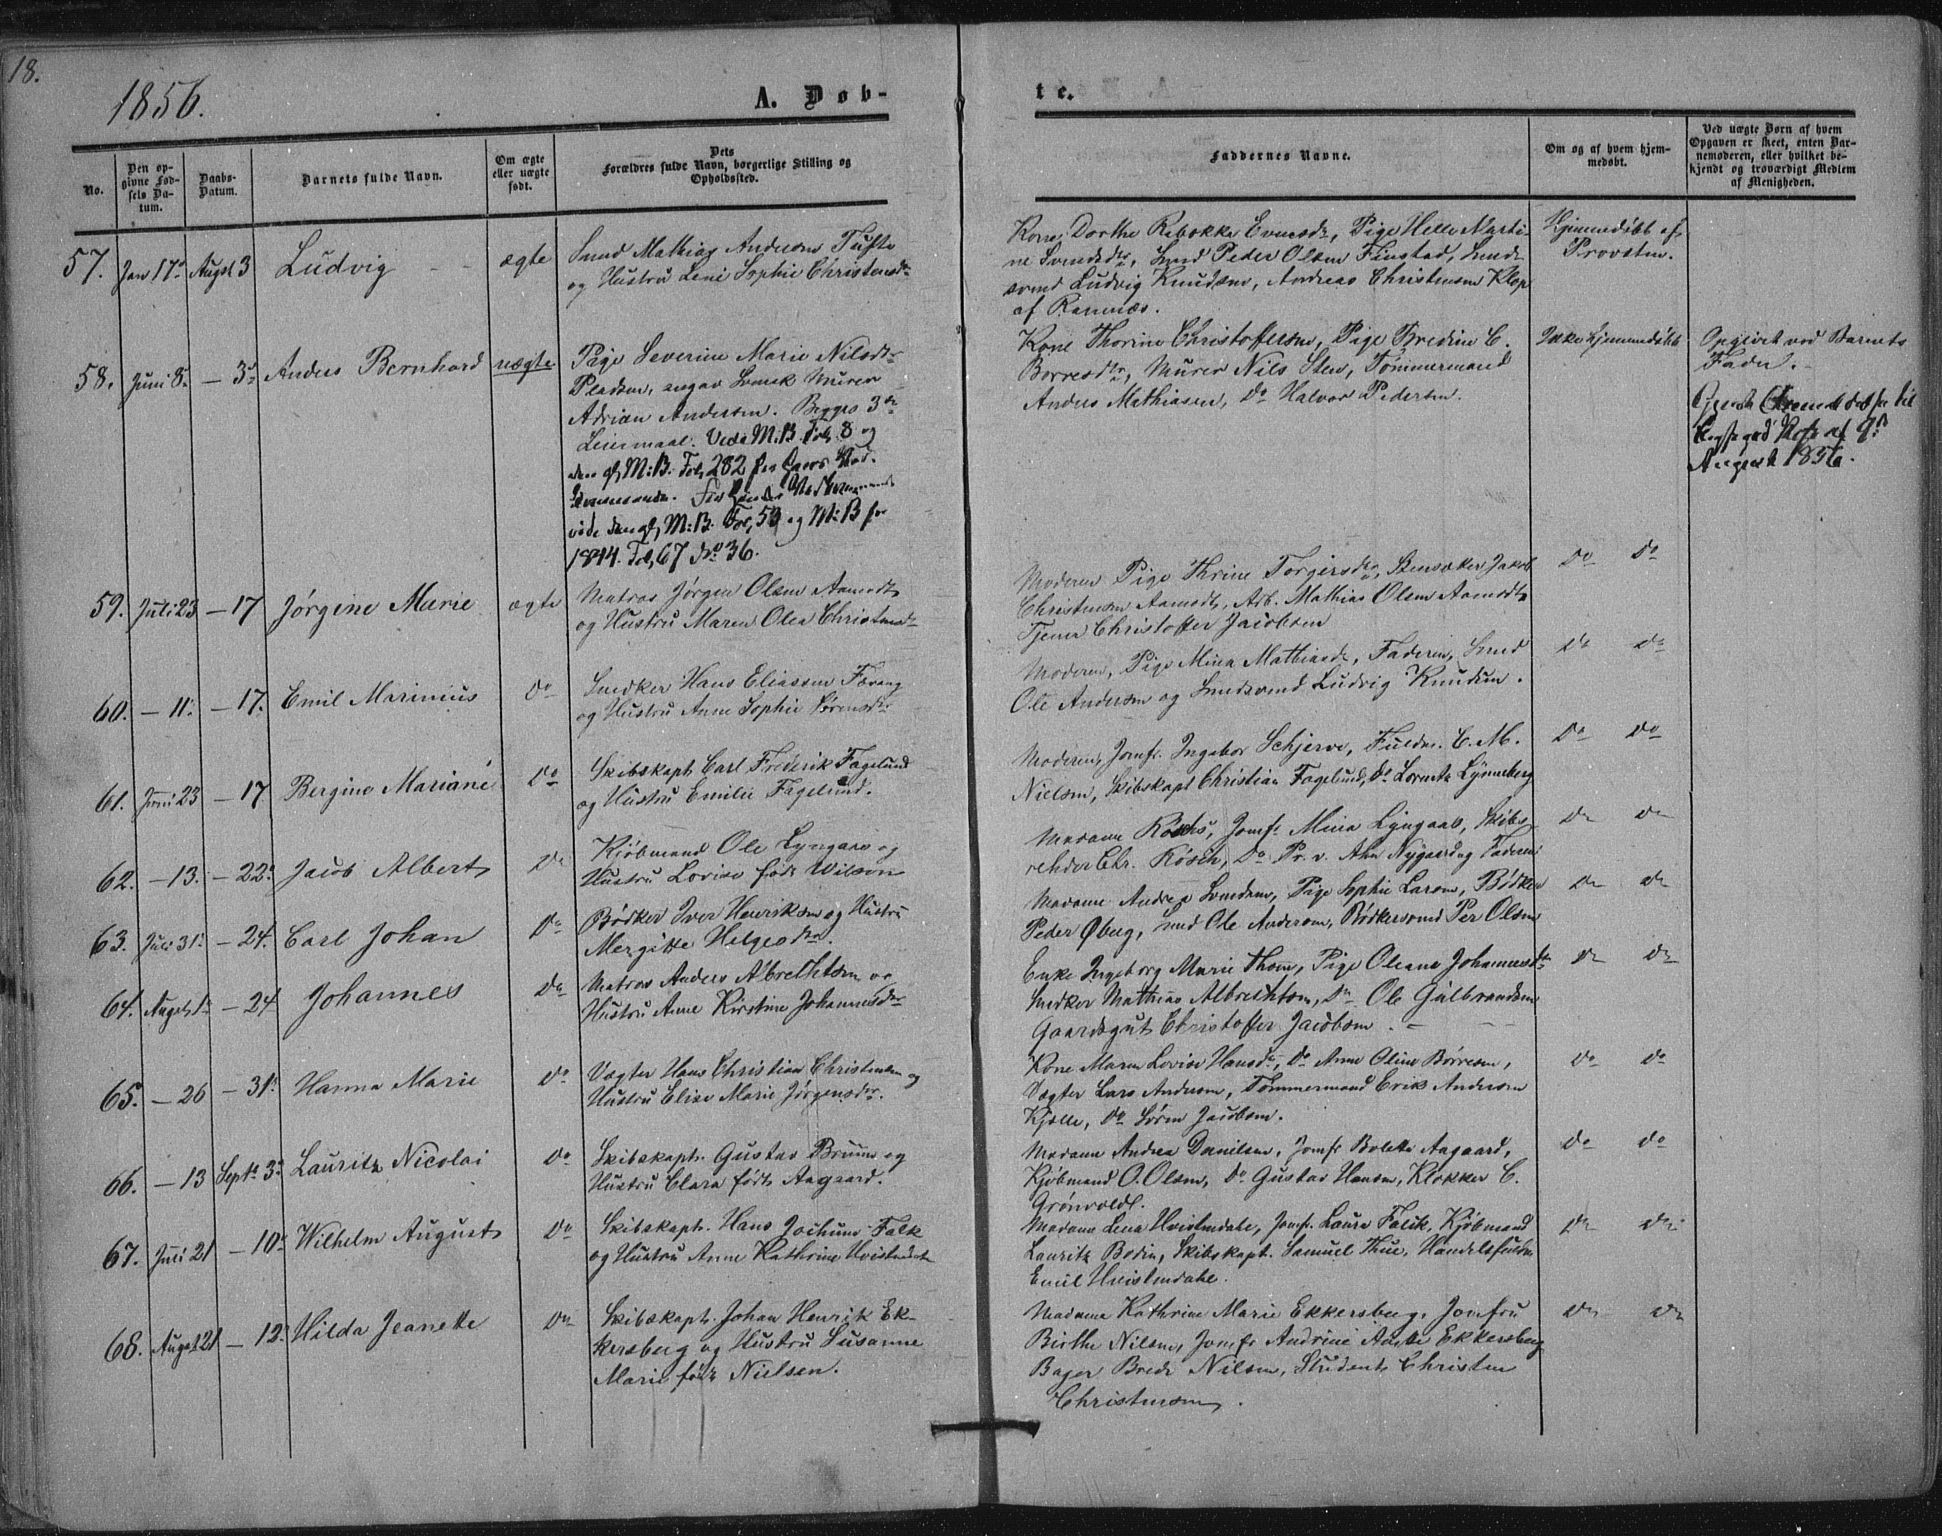 18.
1856.
A. Døb-
te.
No.
Den op-
givne Fød-
sels Da-
tum.
Daabs-
Datum.
Barnets fulde Navn.
Om ægte
eller uægte
født.
Dets
Forældres fulde Navn, borgerlige Stilling og
Opholdssted.
Faddernes Navne.
Om og af hvem hjem-
medøbt.
Ved uægte Børn af hvem
Opgaven er skeet, enten Bar-
nemoderen, eller hvilket be-
kjendt og troværdigt Medlem
af Menigheden.
57. Jan 17. August 3 Ludvig ægte
Smed Mathias Andersen Tufte
og Hustru Leni Sophie Christensdr
Kone, Dorthe Rebekka Evensdr, Pige Helle Marti-
ne Svendsdtr, Smed Peder Olsen Finstad, Smede-
svend Ludvig Knudsen, Andreas Christensen Klop
af Ramnæs.
Hjemmedøbt af
Provsten.
58. Juni 8. - 3. Anders Bernhard uægte
Pige Severine Marie Nilsdtr
Pladsen, angav Svensk Murer
Adrian Andersen. Begges 3de
Leiermaal. Vide M:B. Fol. 8 og
den gl. M:B. Fol. 282 for hans Ved-
kommende. For hendes Vedkommende
vide den gl. M:B. Fol, 53 og M:B for
1844. Fol, 67 No 36.
Kone Thorine Christoffersen, Pige Bredine C.
Borresdtr, Murer Nils Sten, Tømmermand
Anders Mathiasen, Do Halvor Pedersen.
Ikke hjemmedøbt
Opgivet ved Barnets
Fader.
August 1856.
59. Juli 23 - 17 Jørgine Marie ægte
Matros Jørgen Olsen Aamodt
og Hustru Maren Olea Christensdr
Moderen Pige Thrine Torgersdtr, Jacob
Christensen Aamodt, Arb. Mathias Olsen Aamodt,
Tjener Christoffer Jacobsen
Do Do
60. - 11. - 17. Emil Marinius Do
Snedker Hans Eliassen Farang
og Hustru Anne Sophie Sørensdr
Moderen, Pige Mina Mathiasdr, Faderen, Smed
Ole Andersen og Smedsvend Ludvig Knudsen.
Do Do
61. Juni 23 - 17 Bergine Mariane Do
Skibskapt. Carl Frederik Fagelund
og Hustru Emilie Fagelund.
Moderen, Jomfr. Ingebor Schjerve, Fuldm. C. M.
Nielsen, Skibskapt Christian Fagelund, Do Lorentz Lynneberg
Do Do
62. - 13. - 22. Jacob Albert Do
Kjøbmand Ole Lyngaas og
Hustru Lovise født Wilson
Madame Røschs, Jomfr. Mina Lyngaas, Skibs
rehder Chr. Røsch, Do Pr. v. Ahn Nygaard og Faderen
Do Do
63. Juli 31. - 24. Carl Johan Do
Bødker Iver Henriksen og Hustru
Mergitte Helgesdtr.
Madame Andrea Svendsen, Pige Sophie Larsen, Bødker
Peder Øberg, Smed Ole Andersen, Bødkersvend Per Olsen
Do Do
64. August 1. - 24 Johannes Do
Matros Anders Albrechtsen og
Hustru Anne Kirstine Johannesdr
Enke Ingeborg Marie Thom, Pige Oleana Johannesdtr
Snedker Mathias Albrechtsen, Do Ole Gulbrandsen
Gaardsgut Christoffer Jacobsen.
Do Do
65. - 26 - 31. Hanna Marie Do
Vægter Hans Christian Christensen og
Hustru Elise Marie Jørgensdr.
Kone Maren Lovise Hansdr, Do Anne Oline Børresen,
Vægter Lars Andersen, Tømmermand Erik Andersen
Kjølle, Do Søren Jacobsen.
Do Do
66. - 13 Septr. 3. Lauritz Nicolai Do
Skibskapt. Gustav Bruun og
Hustru Clara født Aagaard.
Madame Andrea Danielsen, Jomfr Bolette Aagaard,
Kjøbmand O. Olsen, Do Gustav Hansen, Klokker C.
Grønvold.
Do Do
67. Juni 21 - 10. Wilhelm August Do
Skibskapt. Hans Jochum Falk
og Hustru Anne Kathrine Hvistendahl
Madame Lena Hvistendahl, Jomfr. Laura Falck, Kjøbmand
Lauritz Bodin, Skibskapt. Samuel Thue, Handelsfuldm
Emil Hvistendahl.
Do Do
68. August 21 - 12. Hilda Jeanette Do
Skibskapt. Johan Henrik Ek-
kersberg og Hustru Susanne
Marie født Nielsen.
Madame Kathrine Marie Ekkersberg, Jomfru
Birthe Nilsen, Jomfr Andrine Ekkersberg
Bager Brede Nilsen, Student Christen
Christensen.
Do Do